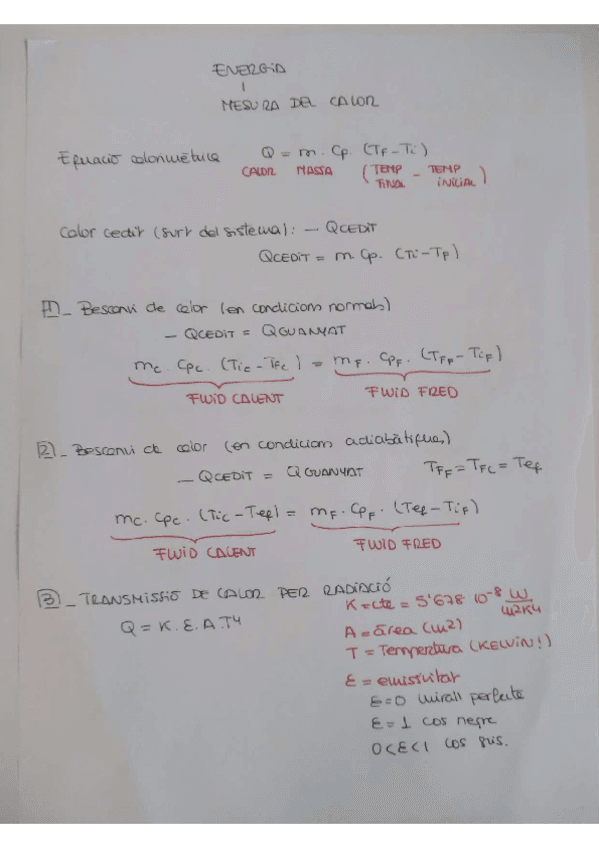 ENERGIA
MESURA DEL CALOR
Equació calorimètrica Q = m. Cp. (TF - Ti)
CALOR MASSA (TEMP FINAL - TEMP INICIAL)
Calor cedit (surt del sistema): - QCEDIT
QCEDIT = m Cp. (Ti - TF)
1 - Bescanvi de calor (en condicions normals)
- QCEDIT = QGUANYAT
mc. Cpc. (Tic - TFc) = mF. CpF. (TFF - TiF)
FLUID CALENT FLUID FRED
2 - Bescanvi de calor (en condicions adiabàtiques)
- QCEDIT = QGUANYAT TFF = TFC = Teq.
mc. Cpc. (Tic - Teq) = mF. CpF. (Teq - TiF)
FLUID CALENT FLUID FRED
3 - TRANSMISSIÓ DE CALOR PER RADIACIÓ
K = cte = 5'678 10^-8 W/m2K4
Q = K. E. A. T4
A = àrea (m2)
T = Temperatura (KELVIN!)
E = emissivitat
E = 0 mirall perfecte
E = 1 cos negre
0 < E < 1 cos gris.